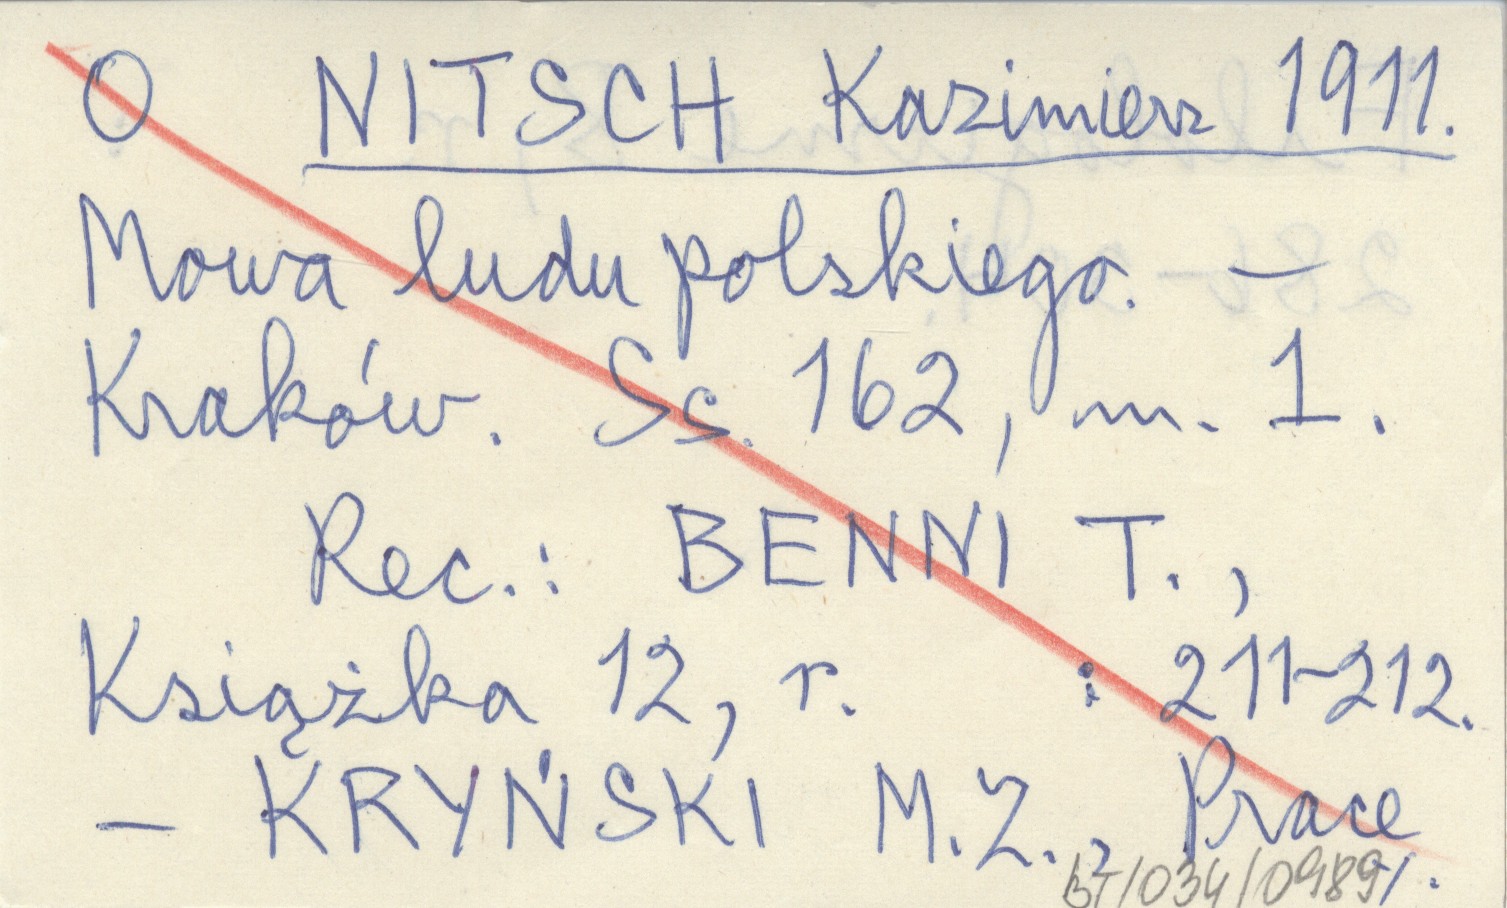 O NITSCH Kazimierz 1911.
Mowa ludu polskiego. –
Kraków. Ss. 162, m. 1.
Rec.: BENNI T.,
Książka 12, r. : 211-212.
– KRYŃSKI M.Z., Prace
BT/034/0989/.